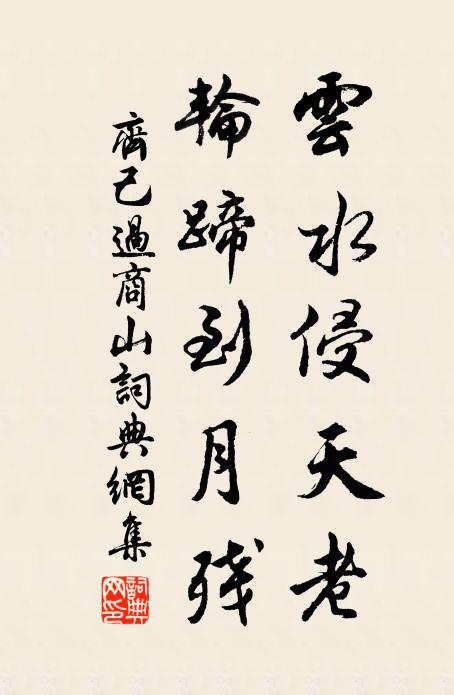 雲水侵天老
輪蹄到月殘
齊己過商山詞典網集
詞典网印